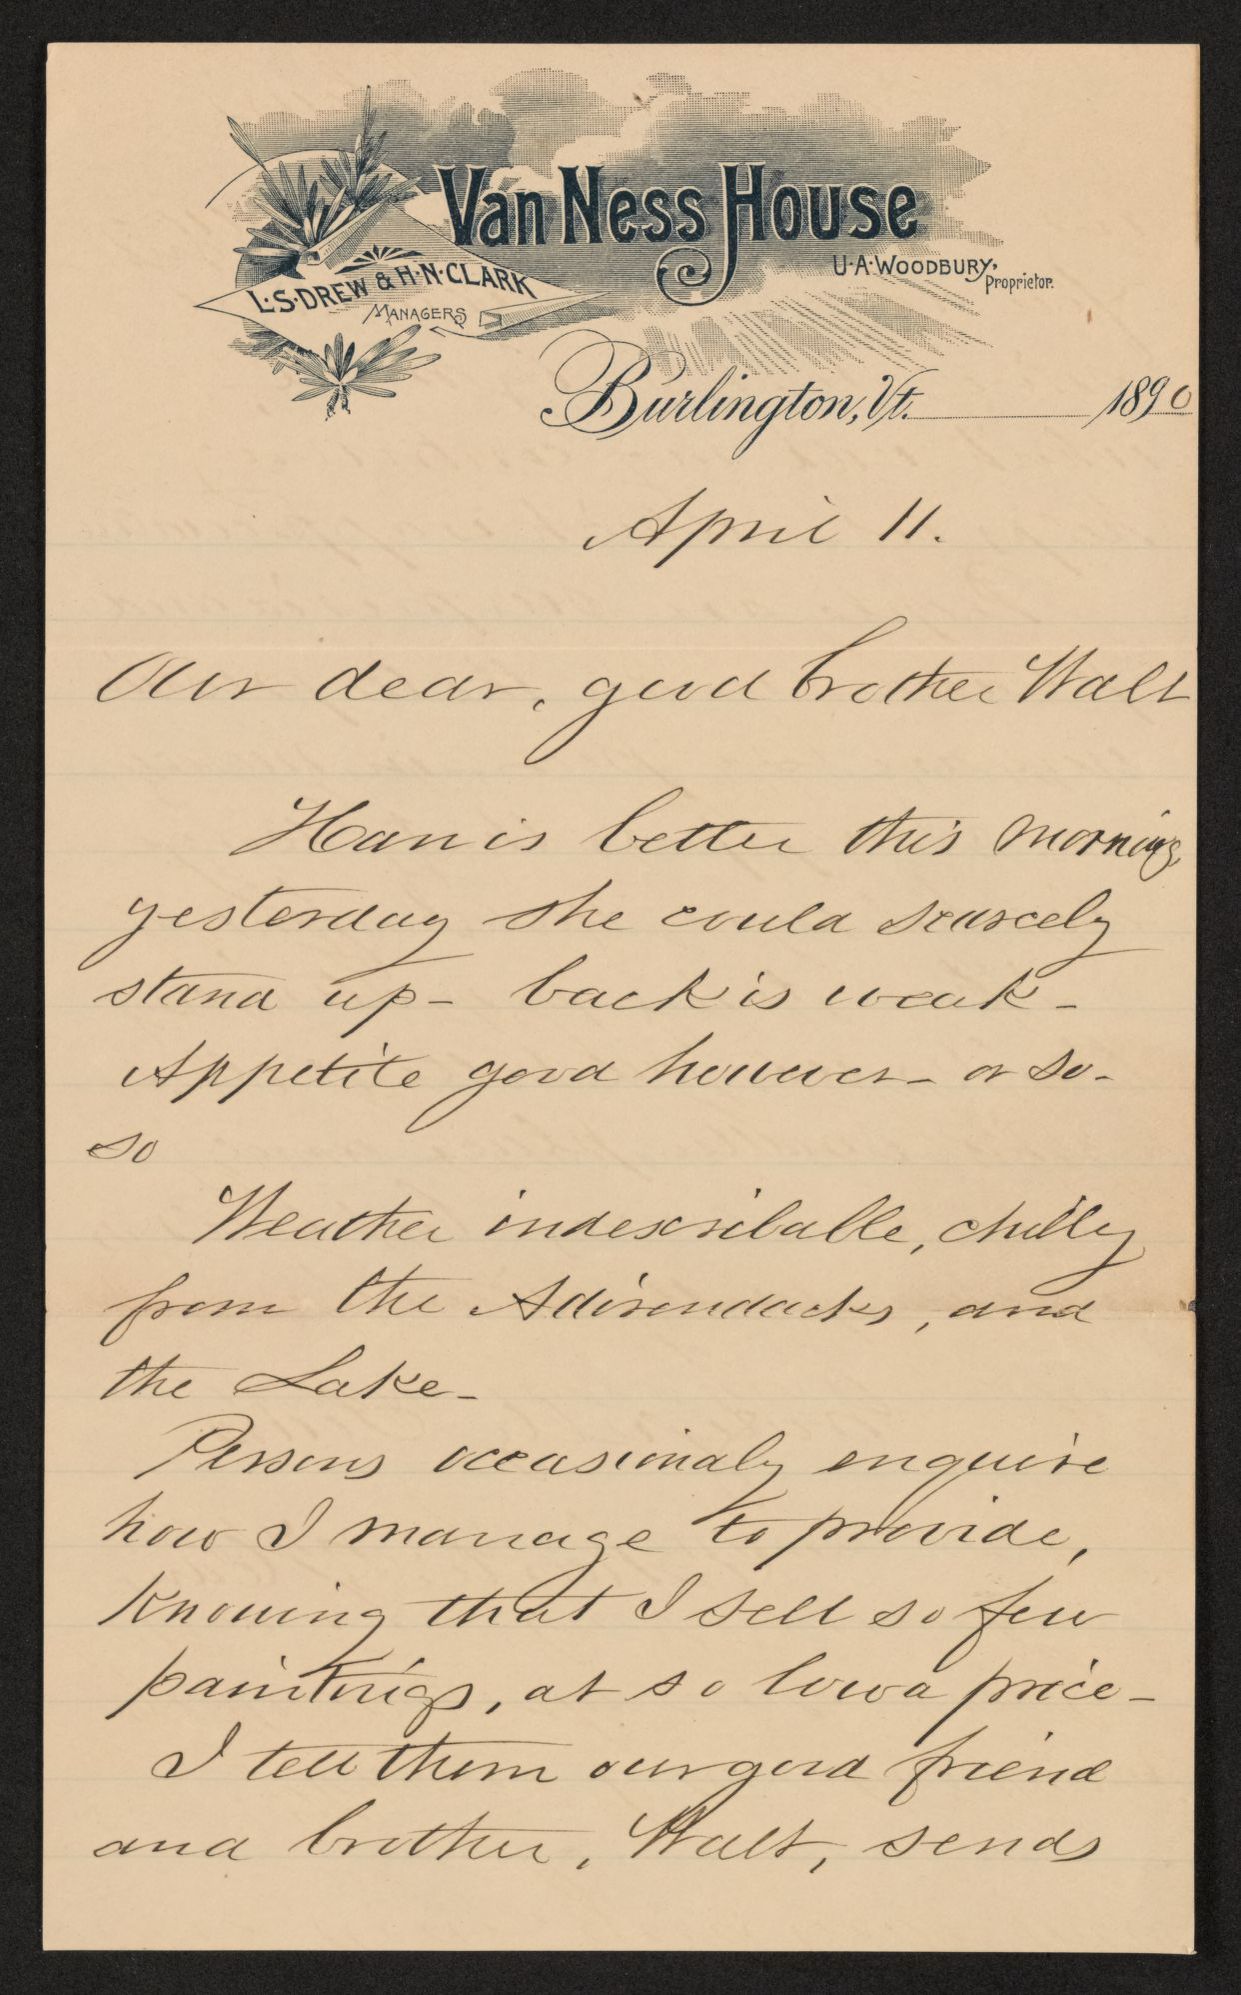 Van Ness House
U·A·Woodbury,
Proprietor.
L·S·Drew & H·N·Clark
Managers
Burlington, Vt. 1890
April 11.
Our dear, good brother Walt
Han is better this morning,
yesterday she could scarcely
stand up - back is weak -
Appetite good however - or so-
so
Weather indescribable, chilly
from the Adirondacks, and
the Lake -
Persons occasionaly enquire
how I manage to provide,
knowing that I sell so few
paintings, at so low a price -
I tell them our good friend
and brother, Walt, sends